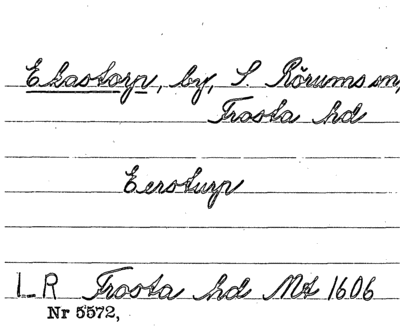 Ekastorp, by, S. Rörums sn,
Frosta hd
Eersturp
LR Frosta hd Mt 1606
Nr 5572,